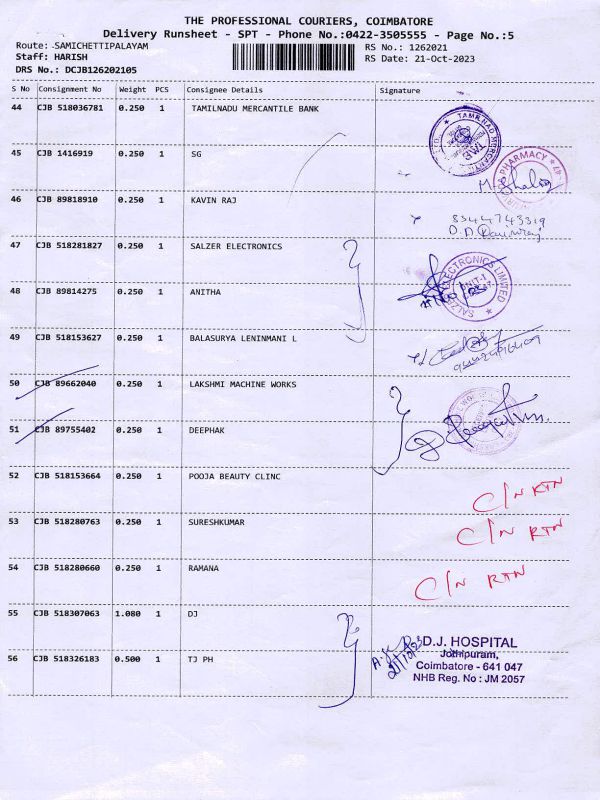 THE PROFESSIONAL COURIERS, COIMBATORE
Delivery Runsheet - SPT - Phone No.:0422-3505555 - Page No.:5
Route: SAMICHETTIPALAYAM
RS No.: 1262021
Staff: HARISH
RS Date: 21-Oct-2023
DRS No.: DCJB126202105
S No Consignment No Weight PCS Consignee Details Signature
44 CJB 518036781 0.250 1 TAMILNADU MERCANTILE BANK
45 CJB 1416919 0.250 1 SG
PHARMACY
46 CJB 89818910 0.250 1 KAVIN RAJ
8344743319
47 CJB 518281827 0.250 1 SALZER ELECTRONICS
SALZER ELECTRONICS LIMITED
UNIT-I
48 CJB 89814275 0.250 1 ANITHA
49 CJB 518153627 0.250 1 BALASURYA LENINMANI L
50 CJB 89662040 0.250 1 LAKSHMI MACHINE WORKS
51 CJB 89755402 0.250 1 DEEPHAK
52 CJB 518153664 0.250 1 POOJA BEAUTY CLINC
C/N RTN
53 CJB 518280763 0.250 1 SURESHKUMAR
C/N RTN
54 CJB 518280660 0.250 1 RAMANA
C/N RTN
55 CJB 518307063 1.080 1 DJ
D.J. HOSPITAL
Jothipuram,
56 CJB 518326183 0.500 1 TJ PH
21/10/23
Coimbatore - 641 047
NHB Reg. No : JM 2057